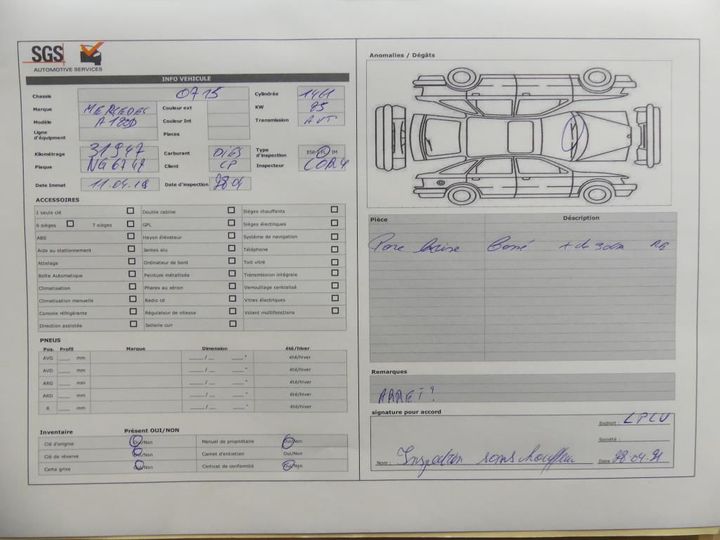 SGS
AUTOMOTIVE SERVICES
INFO VEHICULE
Chassis 0775 Cylindrée 1461
Marque MERCEDES Couleur ext KW 85
Modèle A180D Couleur Int Transmission AUT
Ligne d'équipement Places
Kilométrage 31947 Carburant DIES Type d'inspection
Plaque Client CP Inspecteur
Date Inmat 11.04.18 Date d'inspection 28 04
ACCESSOIRES
1 seule clé Double cabine Sièges chauffants
6 sièges 7 sièges GPL Sièges électriques
ABS Hayon élévateur Système de navigation
Aide au stationnement Jantes alu Téléphone
Attelage Ordinateur de bord Toit vitré
Boîte Automatique Peinture métallisée Transmission intégrale
Climatisation Phares au xénon Verrouillage centralisé
Climatisation manuelle Radio cd Vitres électriques
Camion réfrigérante Régulateur de vitesse Volant multifonctions
Direction assistée Sellerie cuir
PNEUS
Pos. Profil Marque Dimension été/hiver
AVG mm été/hiver
AVD mm été/hiver
ARG mm été/hiver
ARD mm été/hiver
R mm été/hiver
Inventaire Présent OUI/NON
Clé d'origine Oui/Non Manuel de propriétaire Oui/Non
Clé de réserve Oui/Non Carnet d'entretien Oui/Non
Carte grise Oui/Non Certificat de conformité Oui/Non
Anomalies / Dégâts
Pièce Description
Pare brise Cassé + de 30cm
Remarques
signature pour accord
Endroit : LPLU
Société :
Nom : Inspection sans chauffeur Date 28.04.21